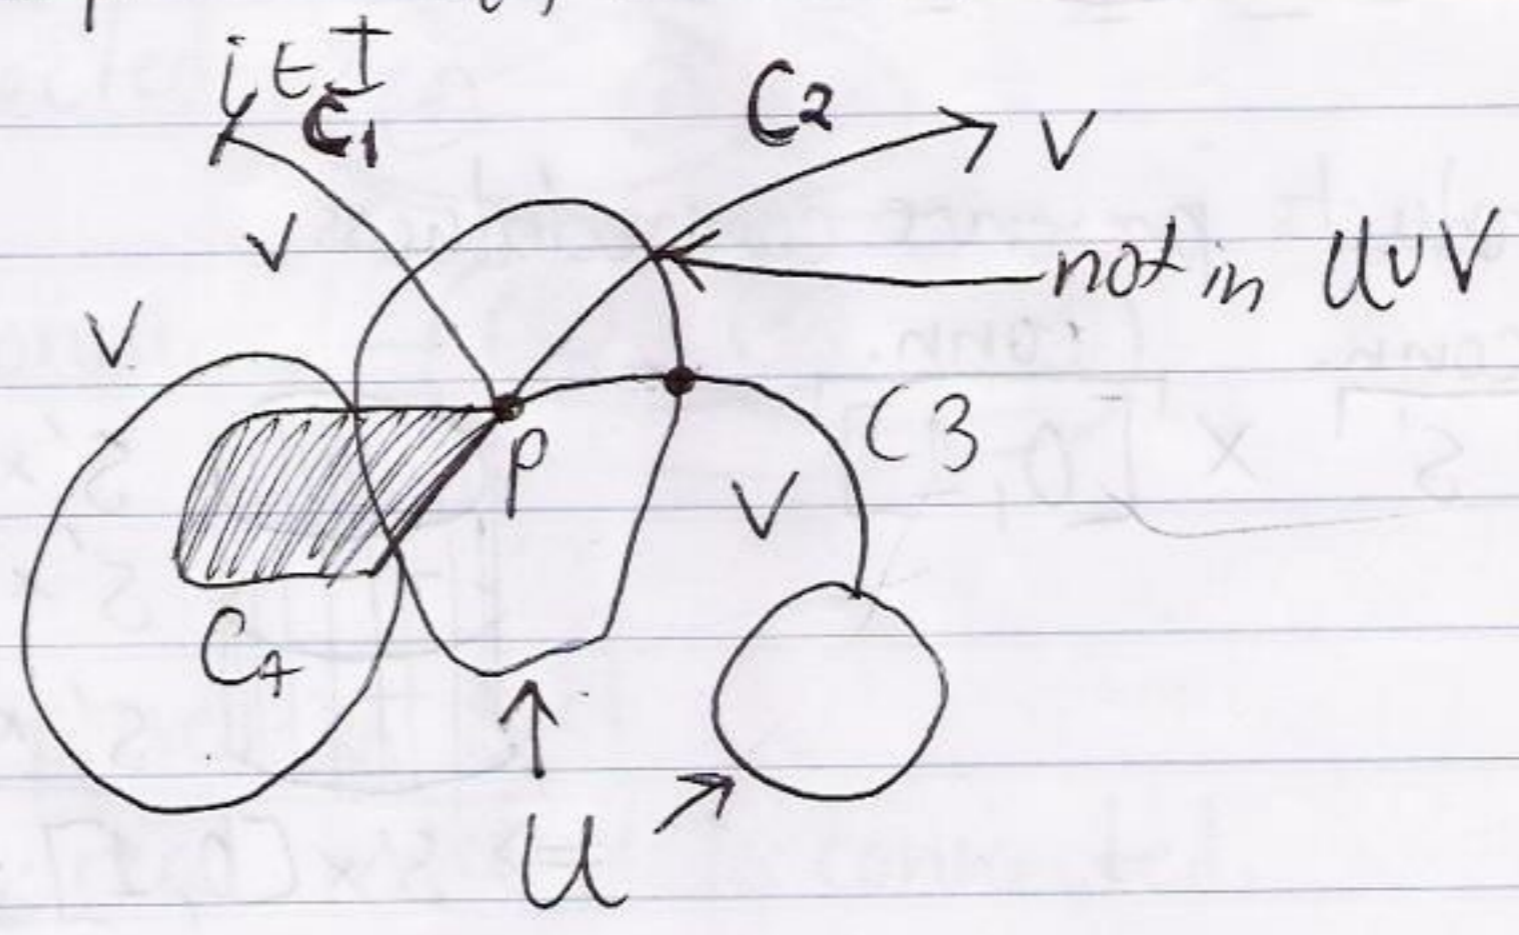 i ∈ I
C1
C2
V
V
not in U∪V
V
C3
p
V
C4
U